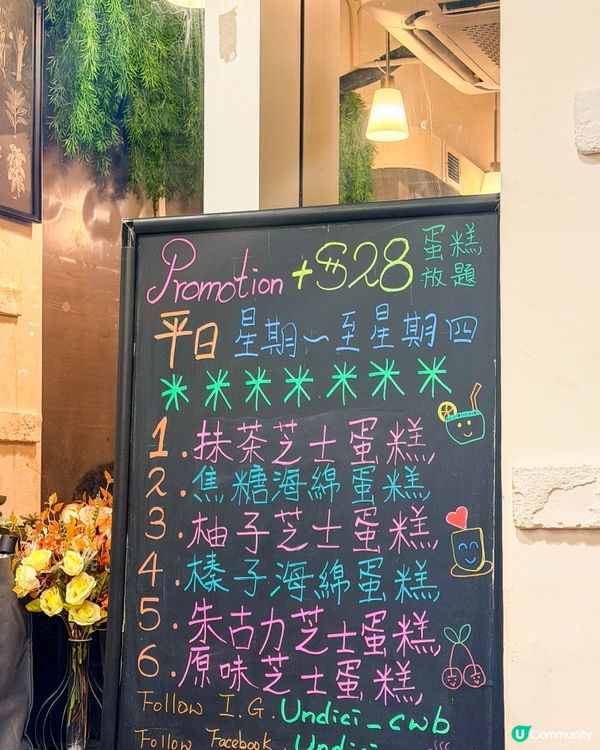 Promotion +$28 蛋糕放題
平日 星期一至星期四
1. 抹茶芝士蛋糕,
2. 焦糖海綿蛋糕,
3. 柚子芝士蛋糕,
4. 榛子海綿蛋糕,
5. 朱古力芝士蛋糕,
6. 原味芝士蛋糕,
Follow I.G. Undici_cwb
Follow Facebook Undici
U Community